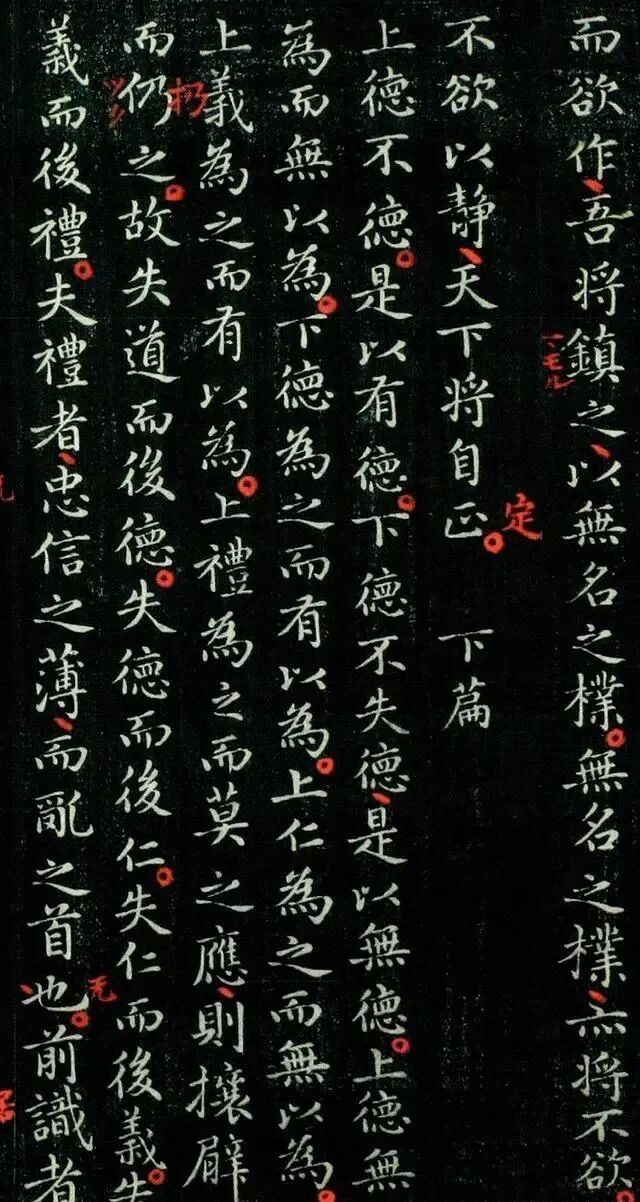 而欲作、吾將鎮之、以無名之樸。無名之樸、亦將不欲。
不欲以靜、天下將自正。 下篇
定
上德不德。是以有德。下德不失德、是以無德。上德無
為而無以為。下德為之而有以為。上仁為之而無以為。
上義為之而有以為。上禮為之而莫之應、則攘臂
扔
而仍之。故失道而後德。失德而後仁。失仁而後義。失
義而後禮。夫禮者、忠信之薄、而亂之首也。前識者
无